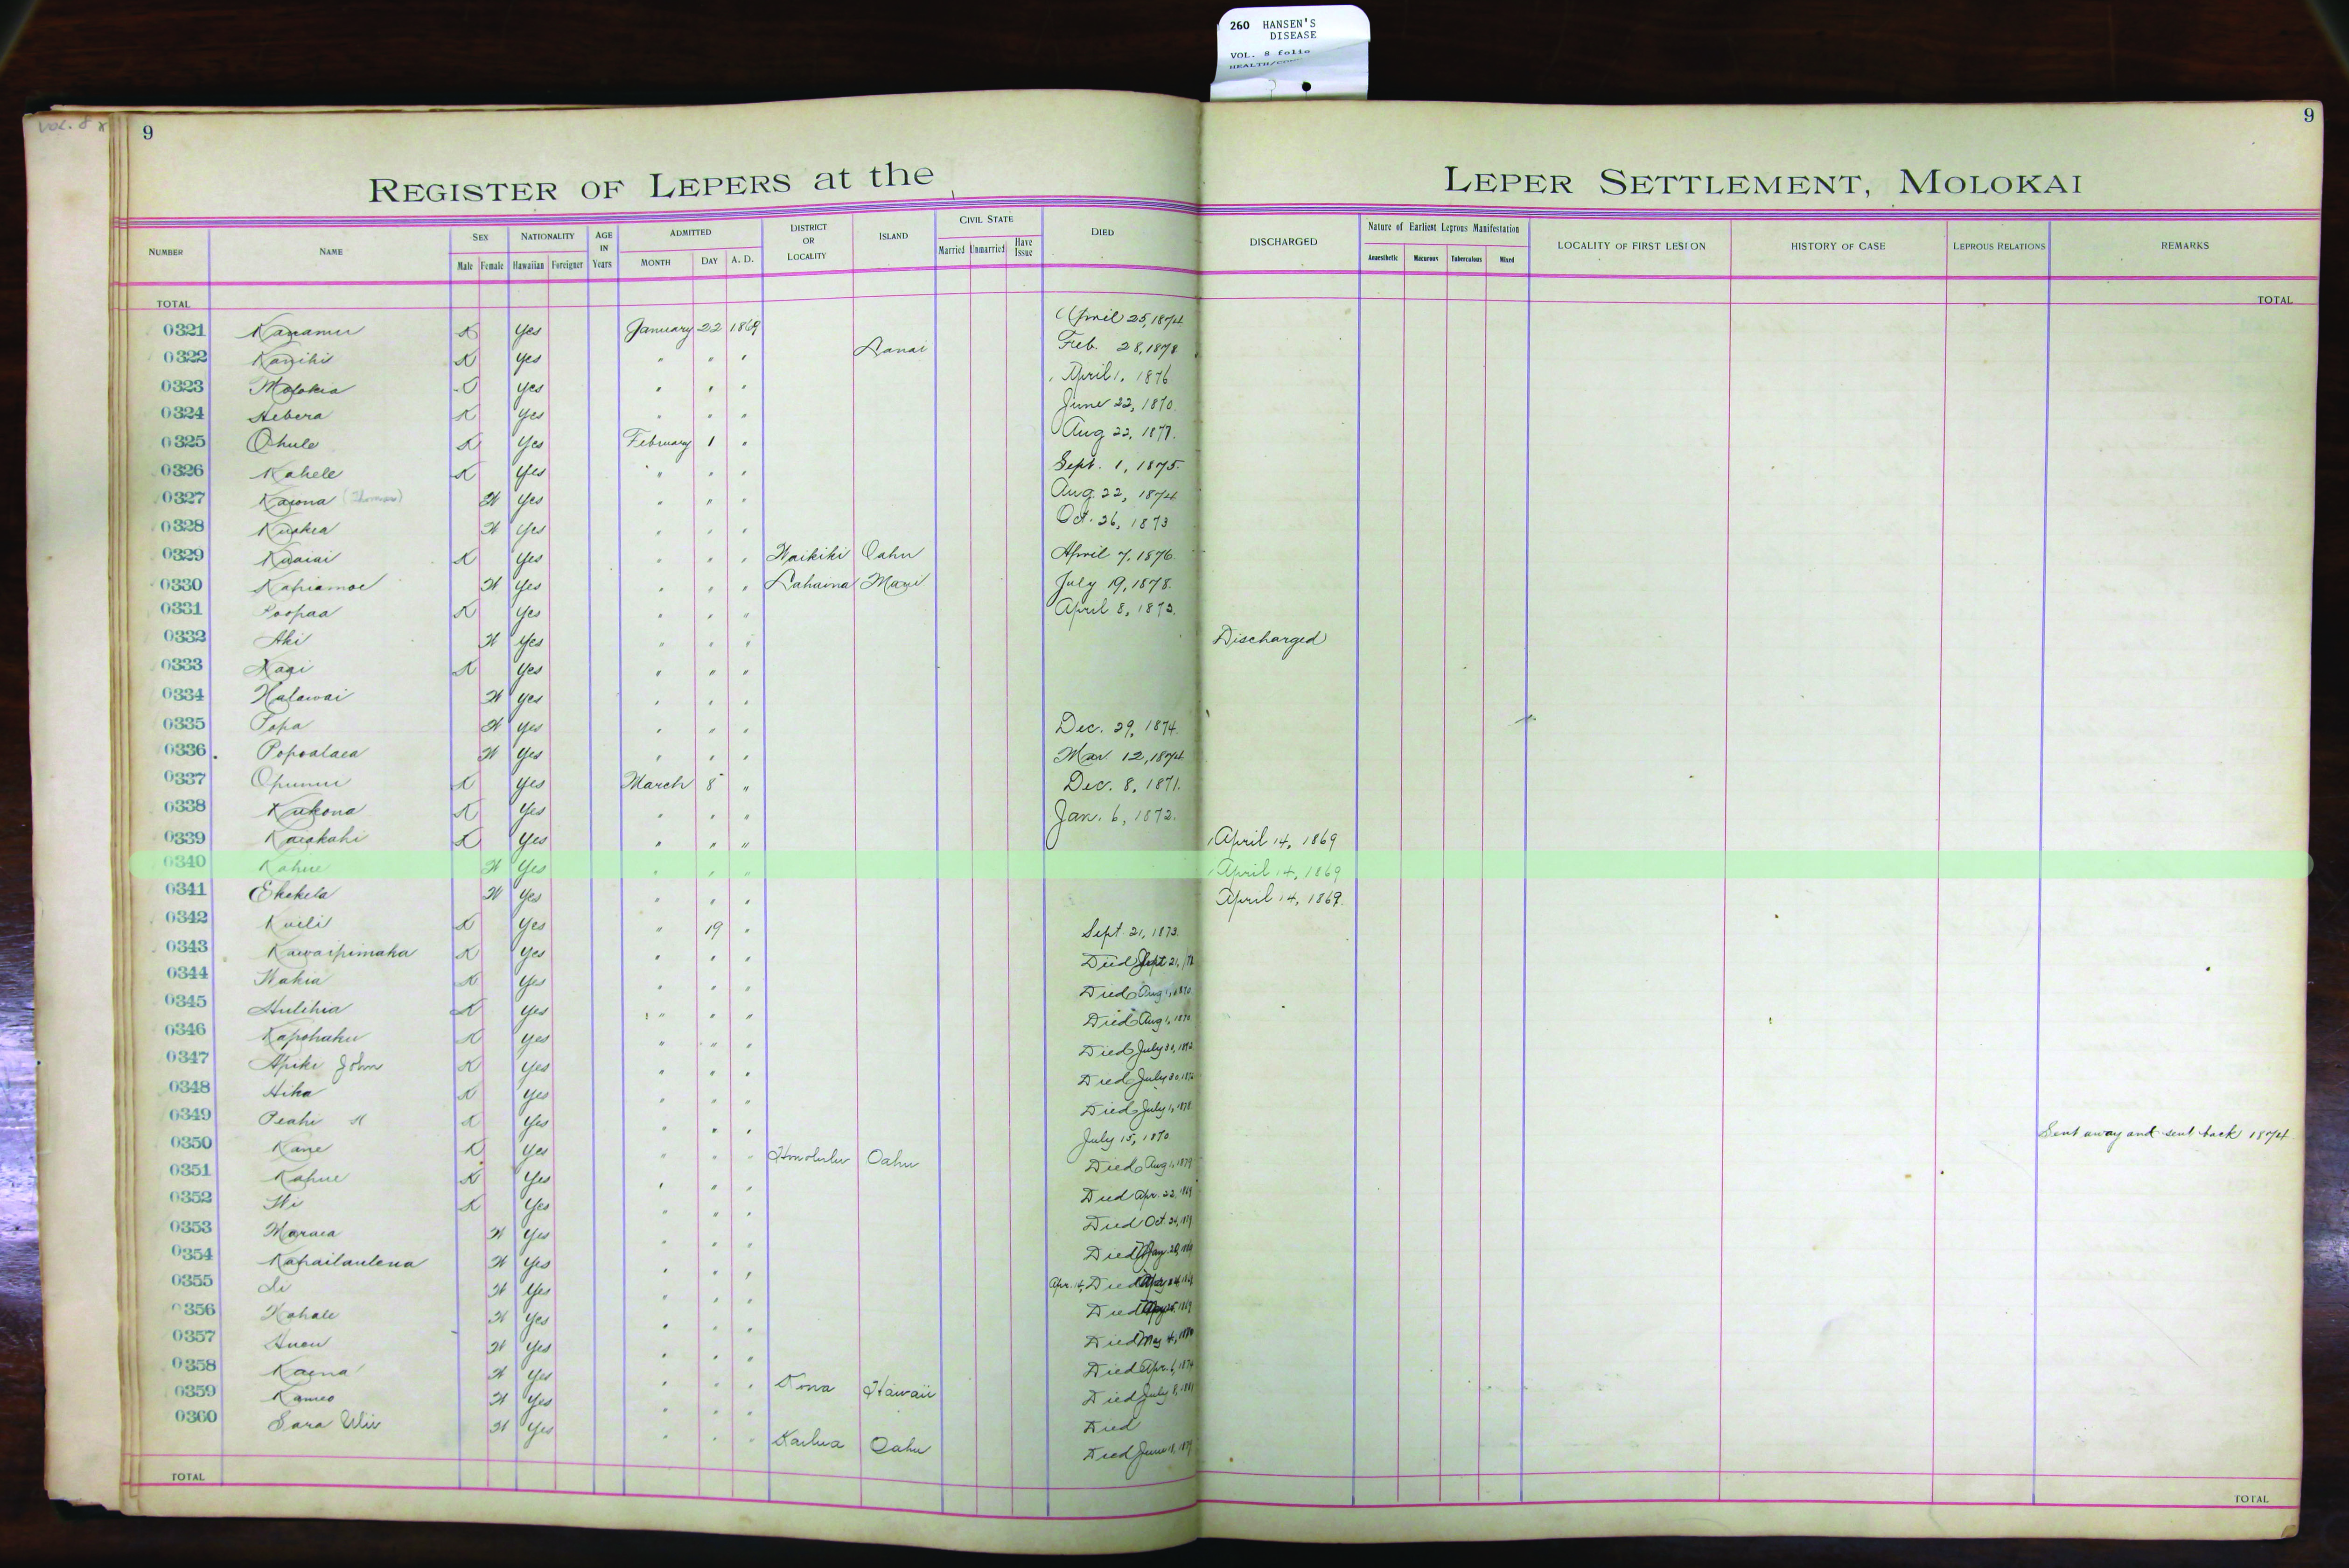 260 HANSEN'S
DISEASE
VOL. 8 folio
VOL. 8
9
9
REGISTER OF LEPERS at the LEPER SETTLEMENT, MOLOKAI
NUMBER NAME SEX NATIONALITY AGE IN Years ADMITTED DISTRICT OR LOCALITY ISLAND CIVIL STATE DIED DISCHARGED Nature of Earliest Leprous Manifestation LOCALITY OF FIRST LESION HISTORY OF CASE LEPROUS RELATIONS REMARKS
Male Female Hawaiian Foreigner MONTH DAY A. D. Married Unmarried Have Issue Anaesthetic Macurous Tuberculous Mixed
TOTAL TOTAL
0321 Kanamu K Yes January 22 1869 April 25, 1874
0322 Kanihi K Yes " " " Lanai Feb. 28, 1878
0323 Molokia Yes " " " April 1, 1876
0324 Hebera K Yes " " " June 22, 1870
0325 Ohule K Yes February 1 " Aug 22, 1877.
0326 Kahele K Yes " " " Sept. 1, 1875.
0327 Kaiona (Thomas) W Yes " " " Aug. 22, 1874
0328 Kuakea W Yes " " " Oct. 26, 1873
0329 Kuaiai K Yes " " " Waikiki Oahu April 7, 1876.
0330 Kahiamoe W Yes " " " Lahaina Maui July 19, 1878.
0331 Poopaa K Yes " " " April 8, 1873.
0332 Aki W Yes " " " Discharged
0333 Kaai K Yes " " "
0334 Halawai W Yes " " "
0335 Popa W Yes " " " Dec. 29, 1874.
0336 Popoalaea W Yes " " " Mar. 12, 1874
0337 Opunui K Yes March 8 " Dec. 8, 1871.
0338 Kukona K Yes " " " Jan. 6, 1872.
0339 Kaiakahi K Yes " " " April 14, 1869
0340 Kahue W Yes " " " April 14, 1869
0341 Ekekela W Yes " " " April 14, 1869.
0342 Kuili K Yes " 19 " Sept. 21, 1873.
0343 Kawaipimaka K Yes " " " Died Sept 21,
0344 Wahia K Yes " " " Died Aug 1, 1870
0345 Hulihia K Yes " " " Died Aug 1, 1870
0346 Kapohaku K Yes " " " Died July 30, 1872
0347 Apiki John K Yes " " " Died July 30, 1872
0348 Hika K Yes " " " Died July 1, 1878
0349 Peahi K Yes " " " July 15, 1870. Sent away and sent back 1874
0350 Kane K Yes " " " Honolulu Oahu Died Aug 1, 1879
0351 Kahue K Yes " " " Died Apr. 22, 1869
0352 Wi K Yes " " " Died Oct. 24,
0353 Maraea W Yes " " " Died
0354 Kahailaulena W Yes " " " Apr. 14, Died
0355 Li W Yes " " " Died 1869
0356 Kahale W Yes " " " Died May 4,
0357 Auou W Yes " " " Died Apr. 6, 1874
0358 Kaena W Yes " " " Kona Hawaii Died July 8, 1881
0359 Kameo W Yes " " " Died
0360 Sara Wii W Yes " " " Kailua Oahu Died June 18, 1879
TOTAL TOTAL